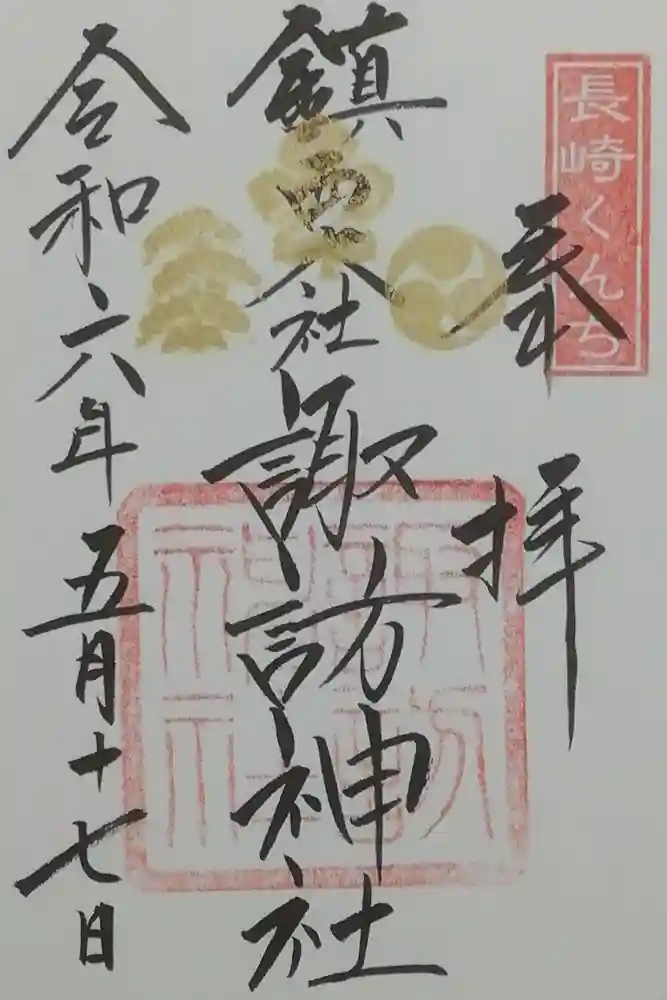 長崎くんち
奉拝
鎮西大社
諏訪神社
諏訪神社
令和六年五月十七日